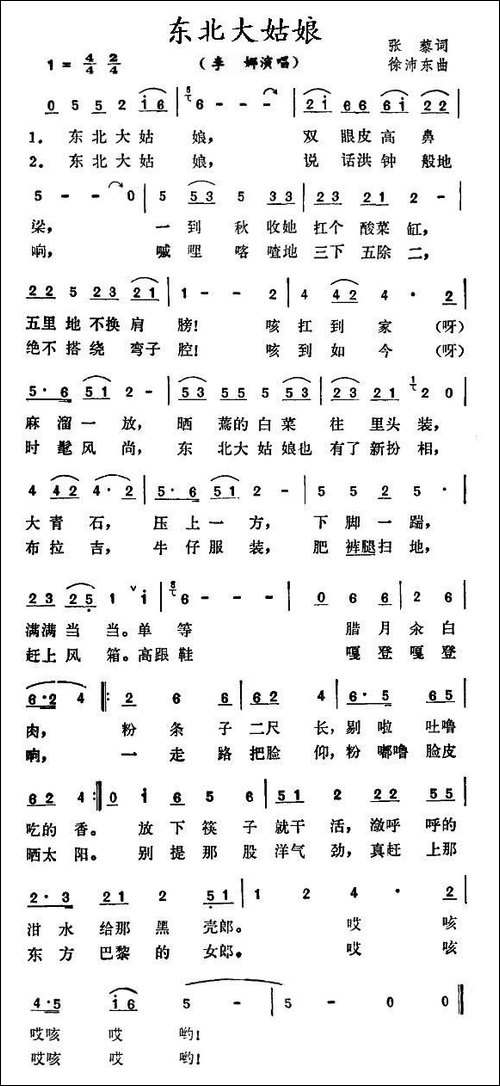 东北大姑娘
1 = 4/4 2/4
（李 娜演唱）
张 藜词
徐沛东曲
0 5 5 2 i6 | 6 - - - | 2i 66 6i 22 |
1. 东北大姑 娘， 双 眼皮高 鼻
2. 东北大姑 娘， 说 话洪钟 般地
5 - - 0 | 5 53 5 33 | 23 21 2 - |
梁， 一到 秋 收她 扛个 酸菜 缸，
响， 喊哩 喀 喳地 三下 五除 二，
22 5 23 21 | 1 - - 2 | 4 42 4 · 2 |
五里 地 不换 肩 膀！ 咳 扛 到 家 （呀）
绝不 搭 绕 弯子 腔！ 咳 到 如 今 （呀）
5·6 51 2 - | 55 55 53 | 23 21 2 0 |
麻 溜 一 放， 晒 蔫的 白 菜 往 里头 装，
时 髦 风 尚， 东 北大 姑 娘也 有了 新扮 相，
4 42 4·2 | 5·6 51 2 - | 5 5 2 5 |
大 青 石， 压 上 一 方， 下 脚 一 踹，
布 拉 吉， 牛 仔 服 装， 肥 裤腿扫 地，
23 25 1 i | 6 - - - | 06 06 | 2 6 |
满满 当 当。单 等 腊 月 汆 白
赶上 风 箱。高跟 鞋 嘎 登 嘎 登
6·2 4 ‖: 2 6 6 | 62 2 | 6· 5 | 65 5 |
肉， 粉 条 子 二尺 长，剔 啦 吐噜
响， 一 走 路 把脸 仰，粉 嘟噜 脸皮
62 4 :‖ 0 i | 65 6 5 | 51 2 | 22 55 |
吃的 香。 放 下 筷 子 就干 活，潋呼 呼的
晒太 阳。 别 提 那 股 洋气 劲，真赶 上那
2·3 21 2 51 | 1 2 4 · 2 |
泔 水 给那 黑 壳郎。 哎 咳
东 方 巴黎 的 女郎。 哎 咳
4·5 i6 5 - | 5 - 0 0 ‖
哎咳 哎 哟！
哎咳 哎 哟！